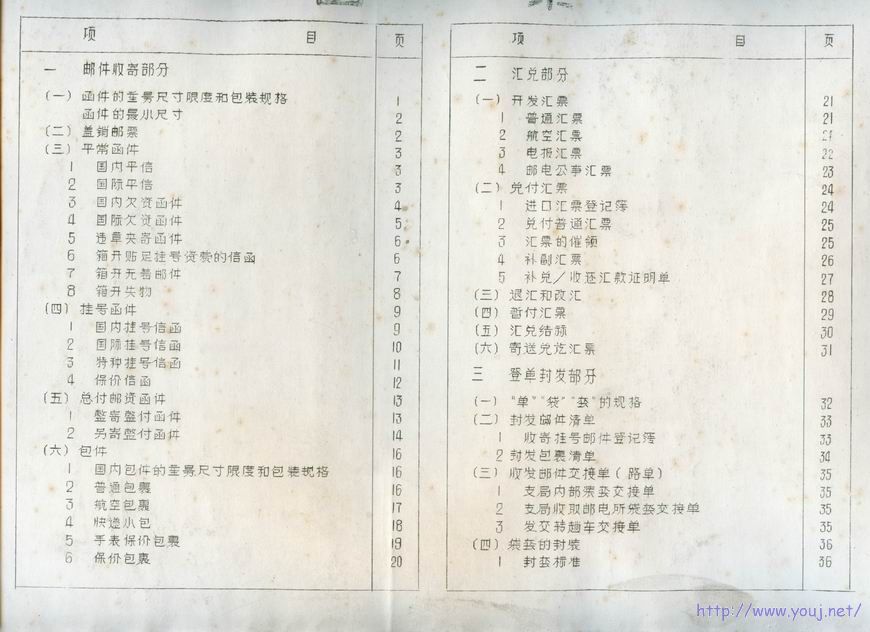 项 目 页
一 邮件收寄部分
(一) 函件的重量尺寸限度和包装规格 1
函件的最小尺寸 2
(二) 盖销邮票 2
(三) 平常函件 3
1 国内平信 3
2 国际平信 3
3 国内欠资函件 4
4 国际欠资函件 5
5 违章夹寄函件 6
6 箱开贴足挂号资费的信函 6
7 箱开无着邮件 7
8 箱开失物 8
(四) 挂号函件 9
1 国内挂号信函 9
2 国际挂号信函 10
3 特种挂号信函 11
4 保价信函 12
(五) 总付邮资函件 13
1 整寄整付函件 13
2 另寄整付函件 14
(六) 包件 16
1 国内包件的重量尺寸限度和包装规格 16
2 普通包裹 16
3 航空包裹 17
4 快递小包 18
5 手表保价包裹 19
6 保价包裹 20
项 目 页
二 汇兑部分
(一) 开发汇票 21
1 普通汇票 21
2 航空汇票 21
3 电报汇票 22
4 邮电公事汇票 23
(二) 兑付汇票 24
1 进口汇票登记簿 24
2 兑付普通汇票 25
3 汇票的催领 25
4 补副汇票 26
5 补兑/收还汇款证明单 27
(三) 退汇和改汇 28
(四) 暂付汇票 29
(五) 汇兑结算 30
(六) 寄送兑讫汇票 31
三 登单封发部分
(一) "单""袋""套"的规格 32
(二) 封发函件清单 33
1 收寄挂号邮件登记簿 33
2 封发包裹清单 34
(三) 收发邮件交接单(路单) 35
1 支局内部袋套交接单 35
2 支局收取邮电所袋套交接单 35
3 发交转趟车交接单 35
(四) 袋套的封装 36
1 封套标准 36
http://www.youj.net/